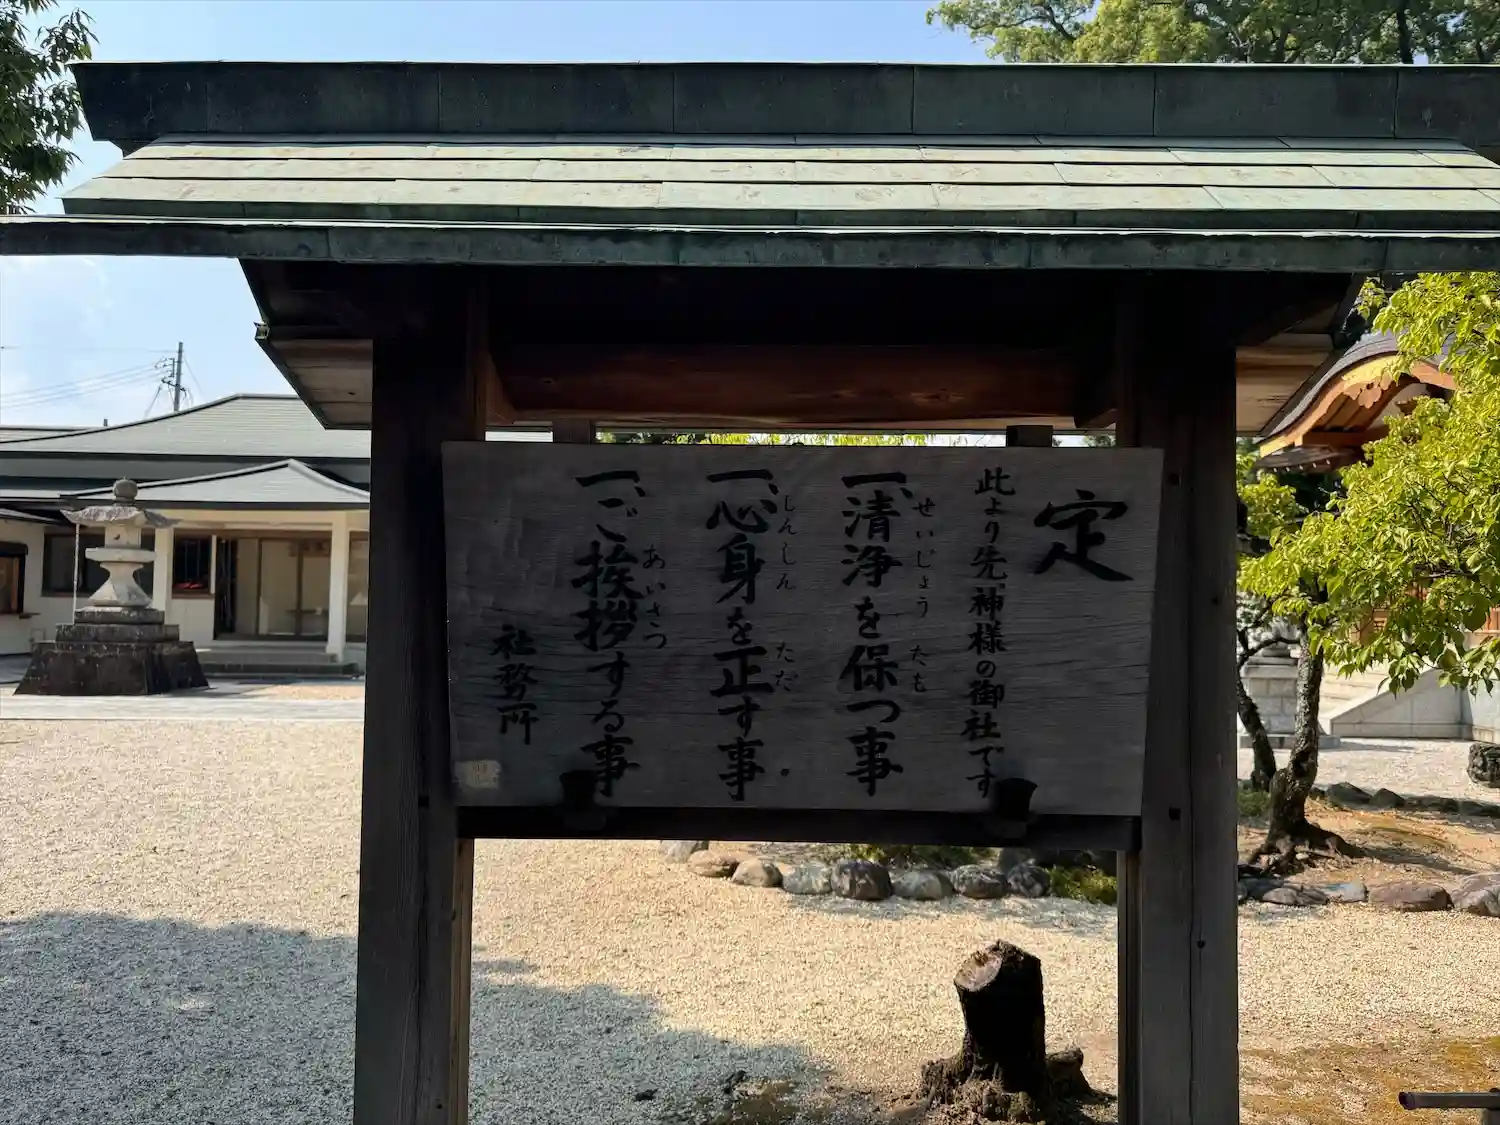 定
此より先神様の御社です
一、清浄を保つ事
せいじょう たも
一、心身を正す事
しんしん ただ
一、ご挨拶する事
あいさつ
社務所